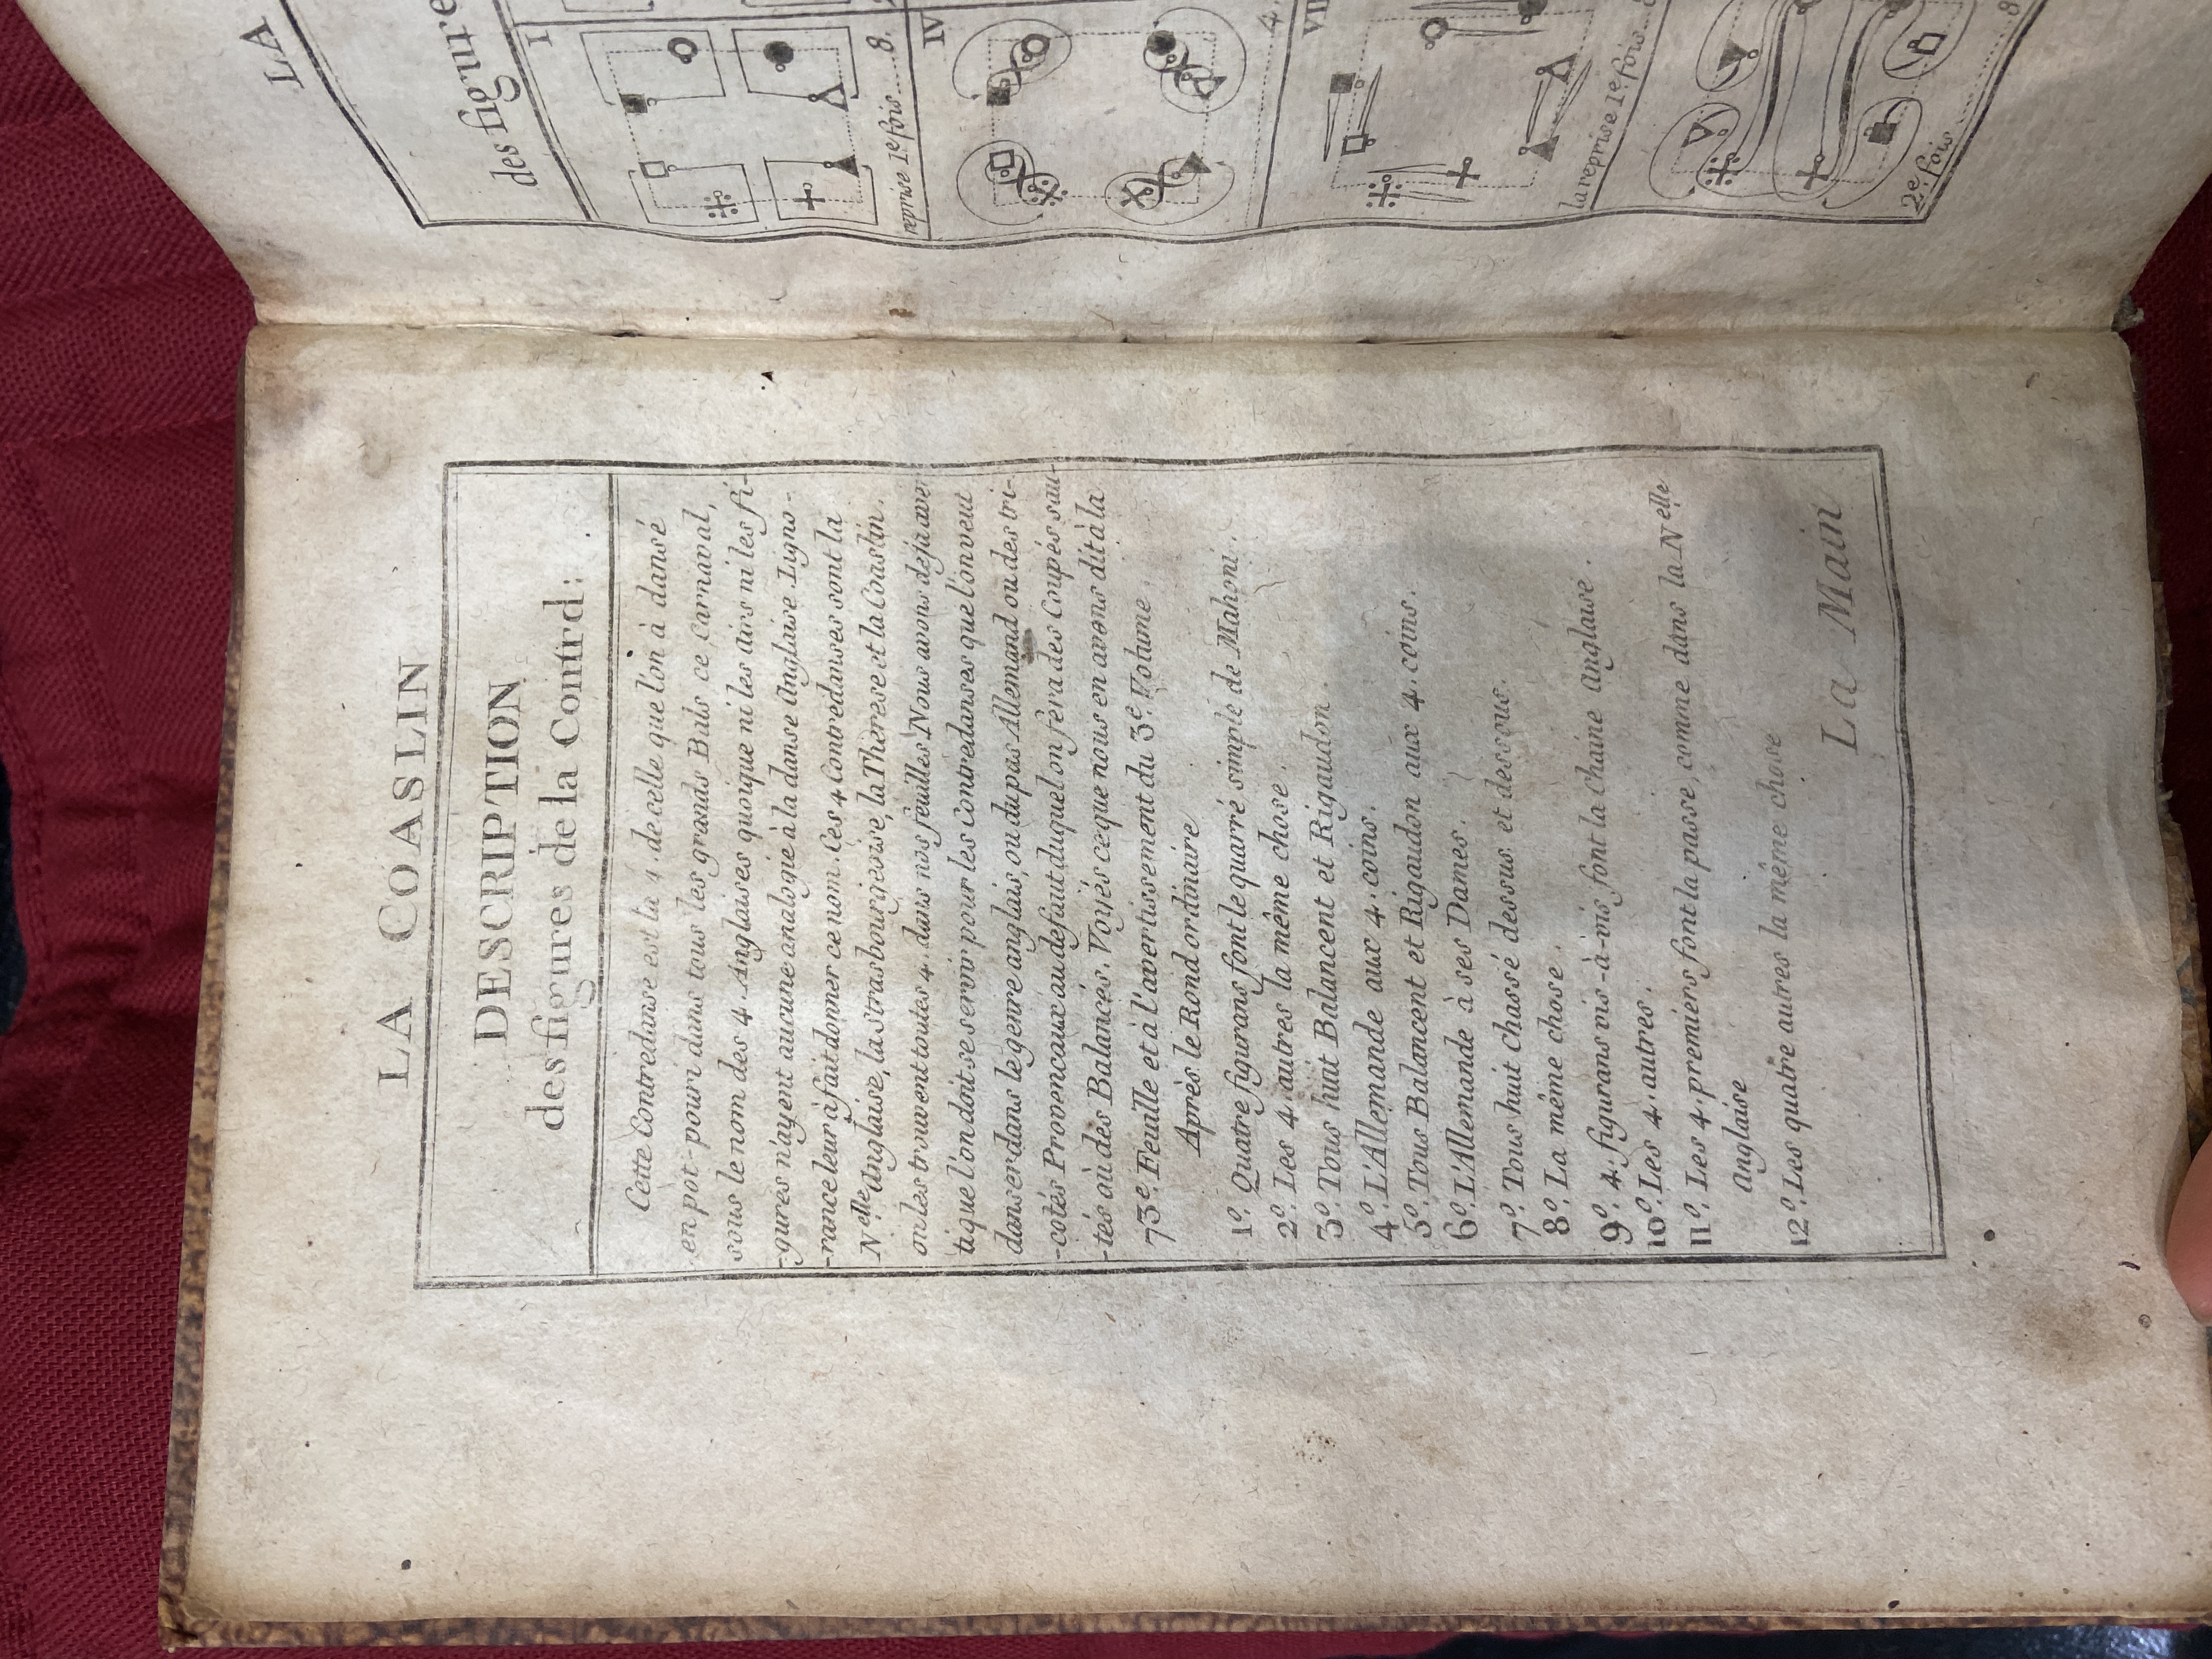 LA COASLIN
DESCRIPTION
des figures de la Contrd:
Cette Contredanse est la 4. de celle que l'on à dansé
en pot-pouri dans tous les grands Bals ce Carnaval,
sous le nom des 4. Anglaises quoique ni les airs ni les fi-
-gures n'ayent aucune analogie à la danse Anglaise. L'igno-
-rance leur à fait donner ce nom. Ces 4 Contredanses sont la
N.elle Anglaise, la strasbourgeoise, la Thérese et la Coaslin.
on les trouvent toutes 4. dans nos feuilles Nous avons deja aver
ti que l'on doit se servir pour les Contredanses que l'on veut
danser dans le genre anglais, ou du pas Allemand ou des tri-
-cotés Provencaux au defaut duquel on fera des Coupés sau-
-tés ou des Balancés. Voyés ce que nous en avons dit à la
73e. Feuille et à l'avertissement du 3e. Volume.
Aprés le Rond ordinaire
1o. Quatre figurans font le quarré simple de Mahoni.
2o. Les 4 autres la même chose.
3o. Tous huit Balancent et Rigaudon.
4o. L'Allemande aux 4. coins.
5o. Tous Balancent et Rigaudon aux 4. coins.
6o. L'Allemande à ses Dames.
7o. Tous huit chassé dessus et dessous.
8o. La même chose.
9o. 4. figurans vis-à-vis font la chaine anglaise.
10o. Les 4. autres.
11o. Les 4. premiers font la passe, comme dans la N.elle
anglaise
12o. Les quatre autres la même chose
La Main
LA
des figure
I
reprise 1e fois..... 8.
IV
4.
VII
la reprise 1e. fois
2e. fois ..... 8